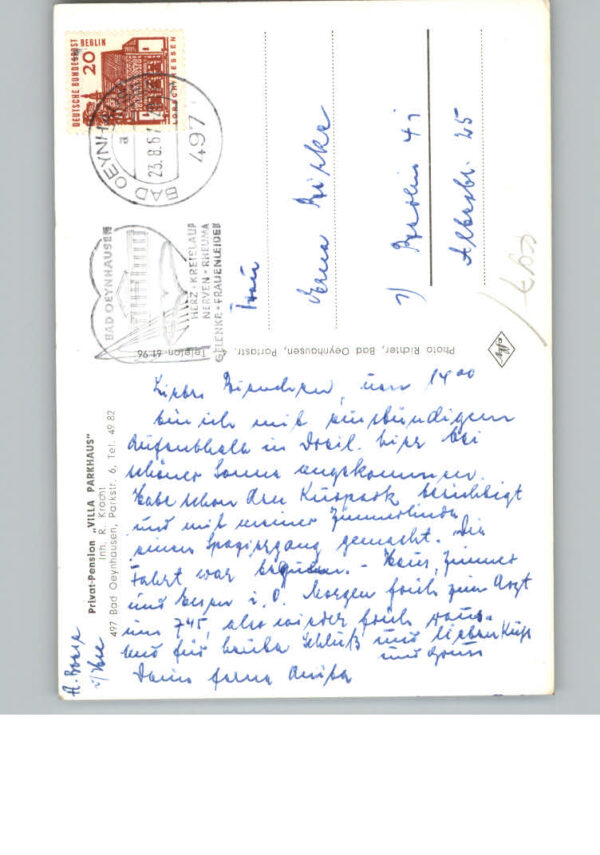 DEUTSCHE BUNDESPOST BERLIN
20
LORSCH/HESSEN
BAD OEYNHAUSEN
a
23.8.67
497
BAD OEYNHAUSEN
HERZ-KREISLAUF
NERVEN-RHEUMA
GELENKE-FRAUENLEIDEN
Frau
Erna
1) Berlin 41
Albestr. 25
Photo Richter, Bad Oeynhausen, Portastr. 4 Telefon 61 96
Privat-Pension „VILLA PARKHAUS"
Inh. R. Kracht
497 Bad Oeynhausen, Parkstr. 6, Tel. 49 82
um 14 00
bin ich mit einstündigem
Aufenthalt in hier bei
schöner Sonne angekommen.
Habe schon den Kurpark besichtigt
und mit meiner Zimmerlinde
einen Spaziergang gemacht. Die
Fahrt war bequem. - Haus, Zimmer
und Essen i. O. Morgen früh zum Arzt
um 745, also wieder früh raus.
Und für heute Schluß und lieben Kuß
und Gruss
Deine